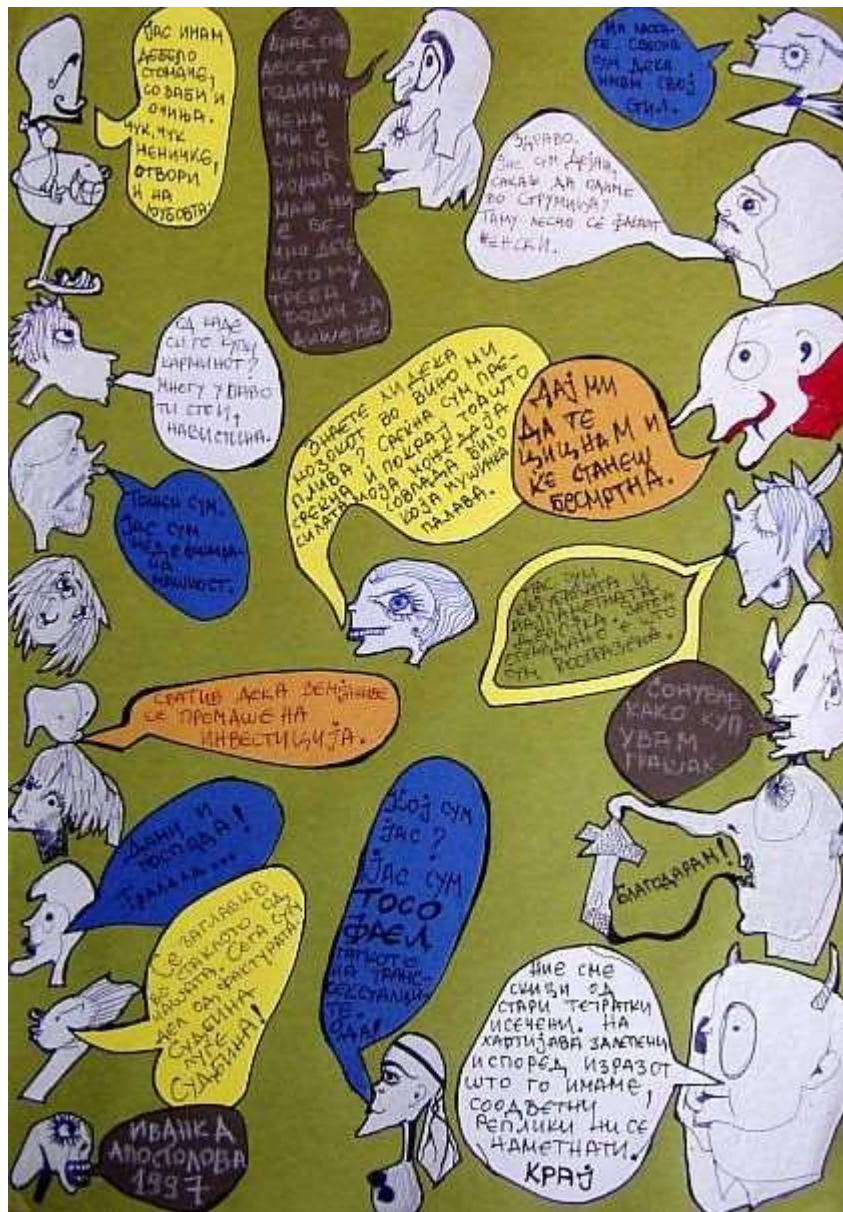 ЈАС ИМАМ
ДЕБЕЛО
СТОМАЧЕ,
СО ЗАБИ И
ОЧИЊА.
ЧУК, ЧУК
ЖЕНИЧКЕ,
ОТВОРИ
И НА
ЉУБОВТА.
ВО
БРАК СМЕ
ДЕСЕТ
ГОДИНИ.
ЖЕНА
МИ Е
СУПЕР
МАЖ МИ
ТРЕБА
ЗА
ДИШЕЊЕ.
СВЕСНА
СУМ ДЕКА
ИМАМ СВОЈ
СТИЛ.
ЗДРАВО.
ЈАС СУМ ДЕЈАН,
САКАШ ДА ОДИМЕ
ВО СТРУМИЦА?
ТАМУ ЛЕСНО СЕ ФАЌААТ
ЖЕНСКИ.
ОД КАДЕ
СИ ГО КУПИ
КАРМИНОТ?
МНОГУ УБАВО
ТИ СТОИ,
НАВИСТИНА.
ЗНАЕТЕ ЛИ ДЕКА
МОЗОКОТ ВО ВИНО МИ
ПЛИВА? СРЕЌНА СУМ ПРЕ-
СРЕЌНА И ПОКРАЈ ТОА ШТО
СИЛАТА МОЈА МОЖЕ ДА ЈА
СОВЛАДА БИЛО
КОЈА МУШИЧКА
ПАЛАВА.
ДАЈ МИ
ДА ТЕ
ЦИЦНАМ И
ЌЕ СТАНЕШ
БЕСМРТНА.
СУМ.
ЈАС СУМ
НЕДЕФИНИРА-
НА
МАШКОСТ.
ЈАС СУМ
НАЈПАМЕТНАТА
ДЕВОЈКА. ЗАТОА
ОПРАВДАНО Е ШТО
СУМ ВООБРАЗЕНА.
СФАТИВ ДЕКА ЗЕМЈАНИВЕ
СЕ ПРОМАШЕНА
ИНВЕСТИЦИЈА.
СОНУВАВ
КАКО КУП-
УВАМ
ГРАШАК.
ДАМИ И
ГОСПОДА!
ТРАЛАЛА...
КОЈ СУМ
ЈАС?
ЈАС СУМ
ТОСО
ФАЕЛ
ТАТКОТО
НА ТРАНС-
СЕКСУАЛЦИ-
ТЕ.
ОДА!
БЛАГОДАРАМ!
СЕ ЗАГЛАВИВ
ВО СТАКЛОТО ОД
ЧАШАТА. СЕГА СУМ
ДЕЛ ОД ФАКТУРАТА
СУДБИНА
ЛУЃЕ
СУДБИНА!
НИЕ СМЕ
СКИЦИ ОД
СТАРИ ТЕТРАТКИ
ИСЕЧЕНИ. НА
ХАРТИЈАВА ЗАЛЕПЕНИ
И СПОРЕД ИЗРАЗОТ
ШТО ГО ИМАМЕ,
СООДВЕТНИ
РЕПЛИКИ НИ СЕ
НАМЕТНАТИ.
КРАЈ
ИВАНКА
АПОСТОЛОВА
1997